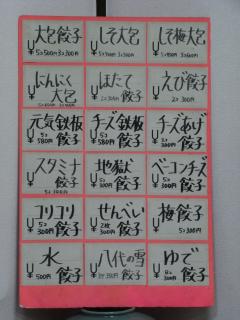 大宮餃子
¥ 5コ500円 3コ300円
しそ大宮
¥
しそ梅大宮
¥
にんにく大宮
¥
ほたて餃子
¥ 2コ300円
えび餃子
¥ 2コ300円
元気鉄板餃子
¥ 5コ580円
チーズ鉄板餃子
¥ 5コ580円
チーズあげ餃子
¥ 300円
スタミナ餃子
¥ 5コ300円
地獄餃子
¥ 300円
ベーコンチーズ餃子
¥ 300円
コリコリ餃子
¥ 5コ300円
せんべい餃子
¥ 2枚300円
梅餃子
¥ 5コ300円
水餃子
¥ 500円
八代の雪餃子
¥
ゆで餃子
¥ 300円